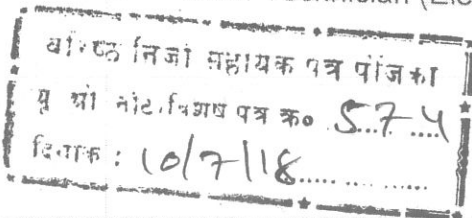 nician (Ele
वरिष्ठ निजी सहायक पत्र पंजिका
यू ओ नोट.विशेष पत्र क्र० 574
दिनांक : 10/7/18